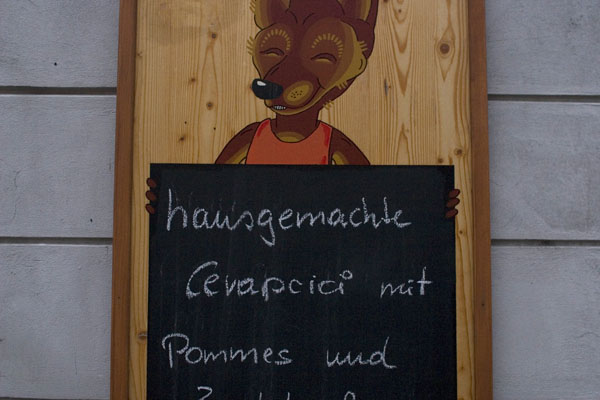 hausgemachte
Cevapcici mit
Pommes und